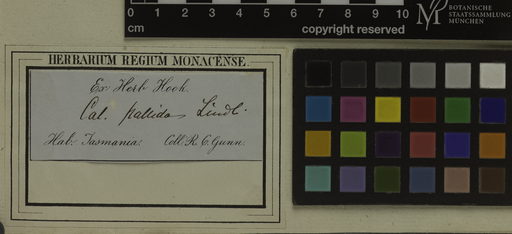 0 1 2 3 4 5 6 7 8 9 10
cm
copyright reserved
M
BOTANISCHE
STAATSSAMMLUNG
MÜNCHEN
HERBARIUM REGIUM MONACENSE.
Ex Herb Hook.
Cal. pallida Lindl.
Hab: Tasmania. Coll: R. C. Gunn.